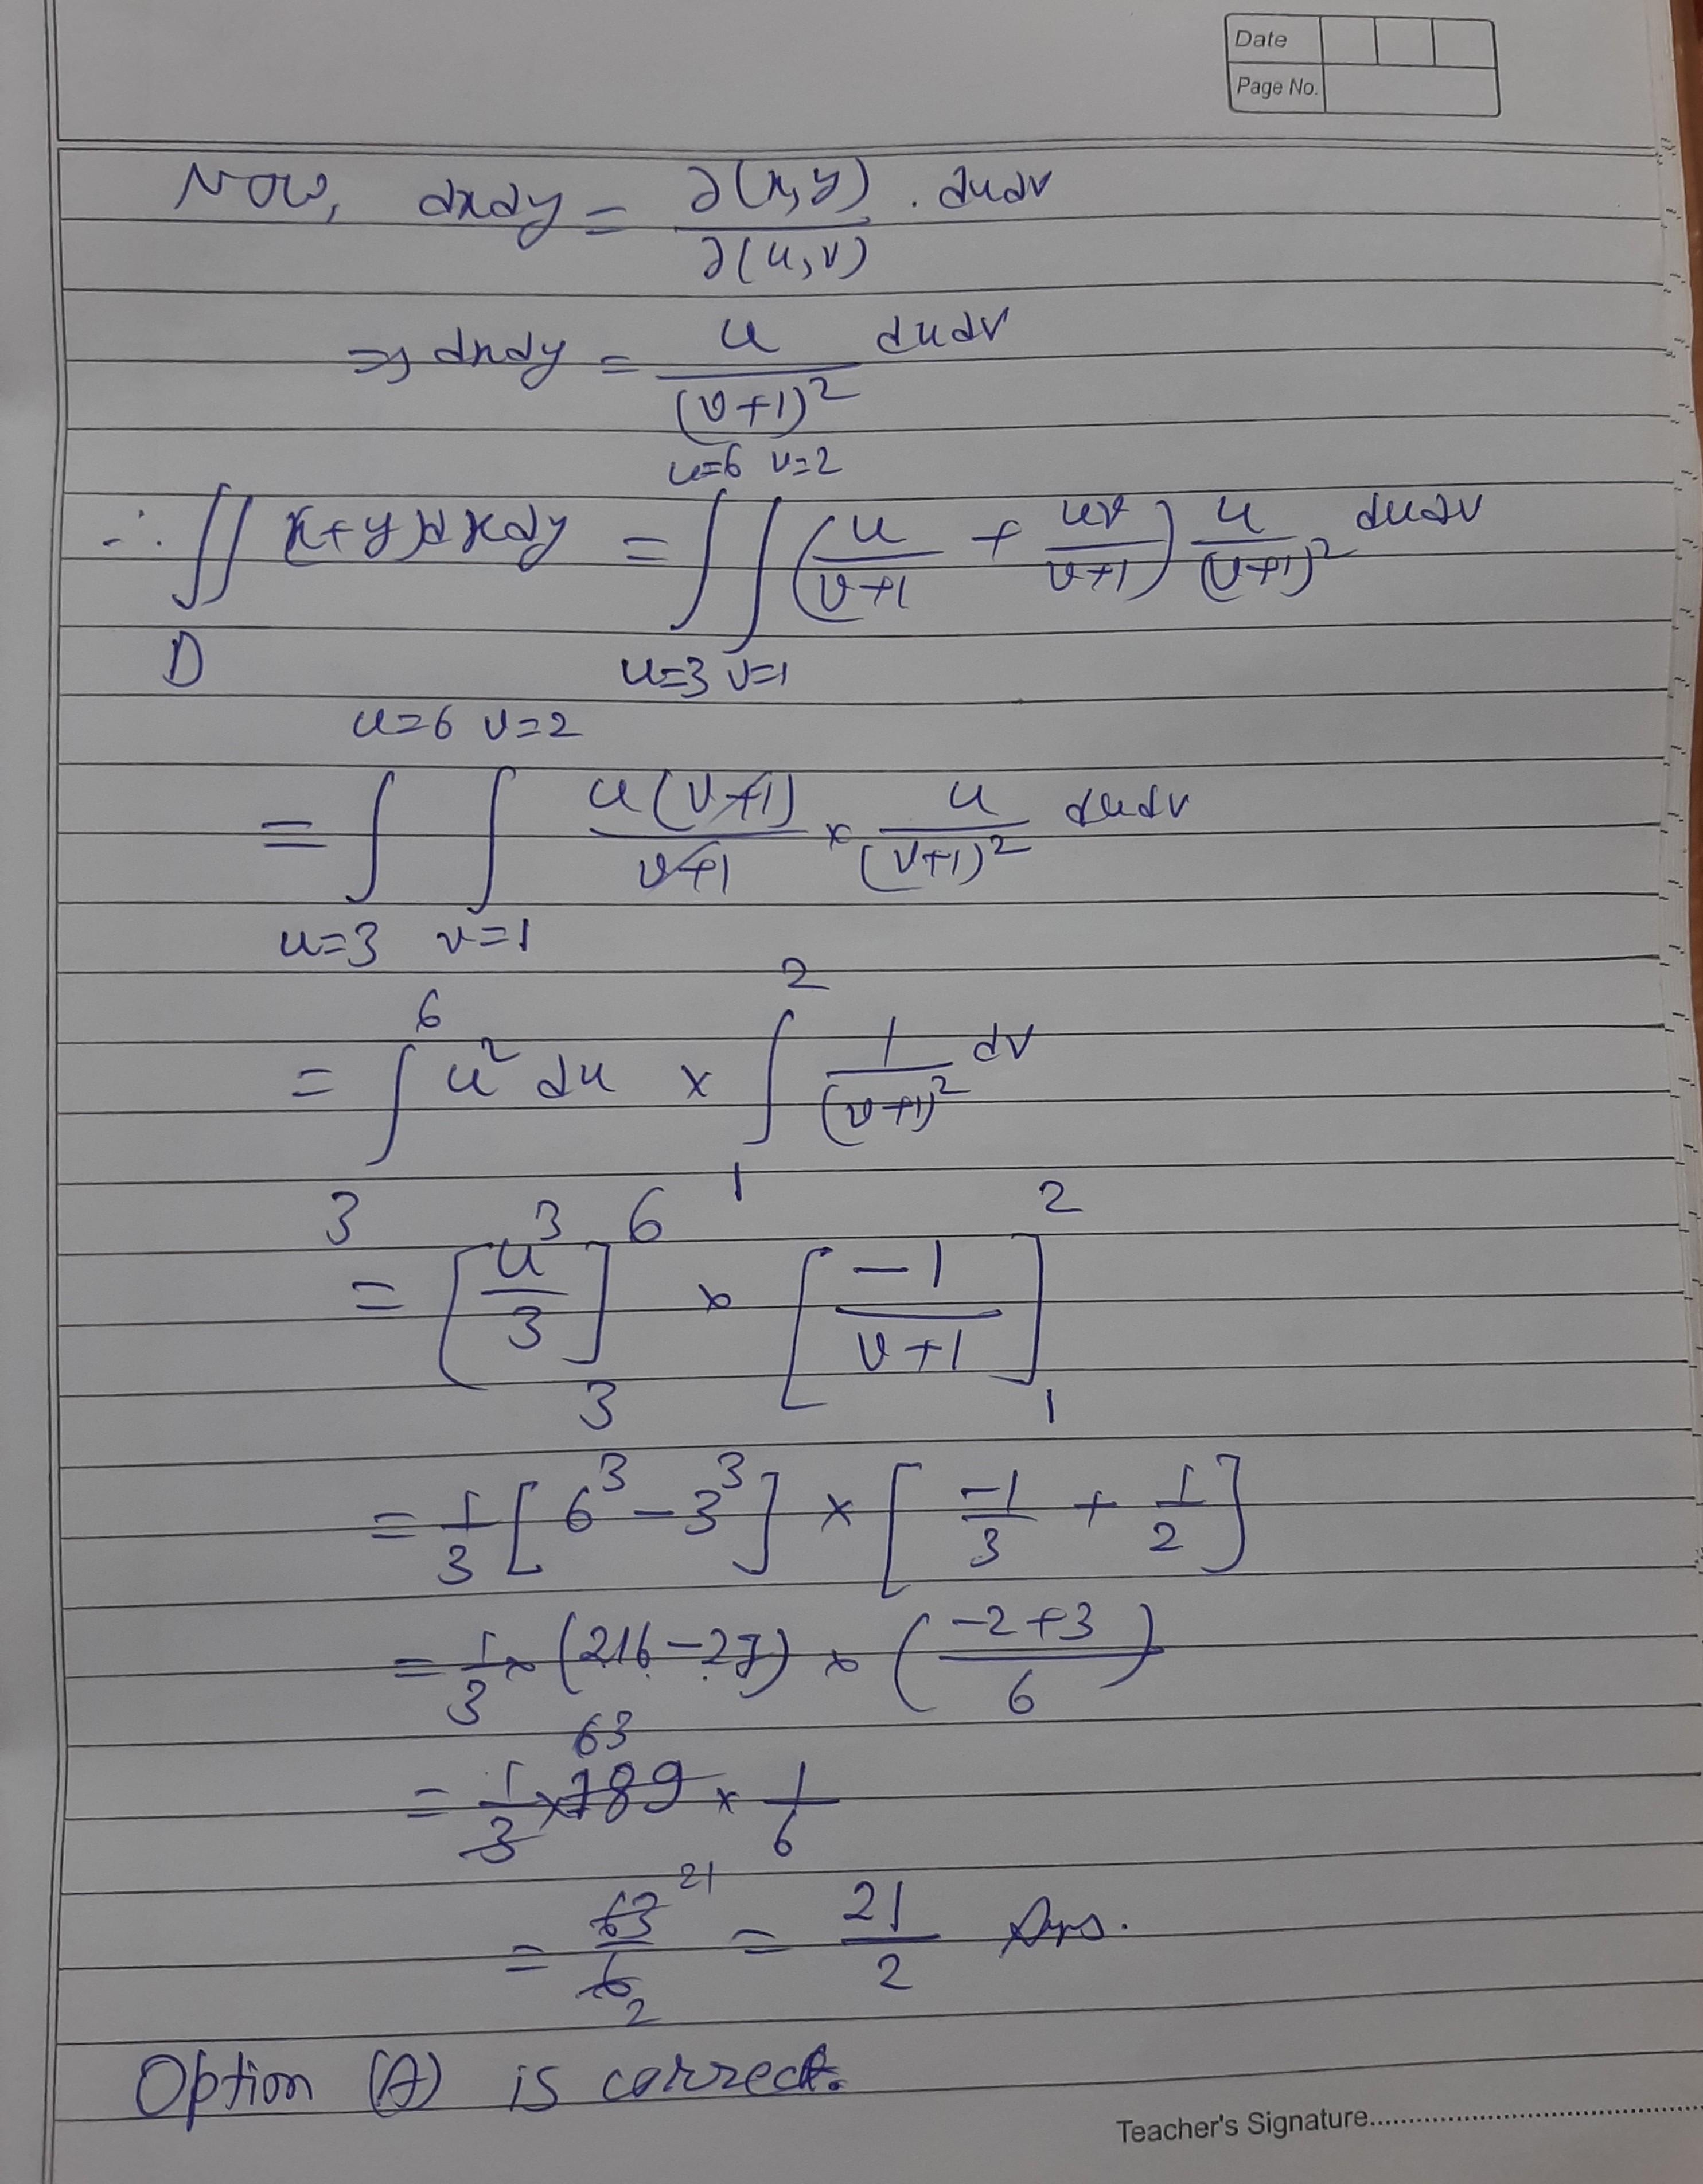 Date
Page No.
Now, dxdy = ∂(x,y)/∂(u,v) . dudv
⇒ dxdy = u/(v+1)² dudv
u=6 v=2
∴ ∬ x+y)dxdy = ∫∫ (u/(v+1) + uv/(v+1)) u/(v+1)² dudv
D u=3 v=1
u=6 v=2
= ∫ ∫ u(v+1)/(v+1) × u/(v+1)² dudv
u=3 v=1
6 2
= ∫ u² du × ∫ 1/(v+1)² dv
3 1
= [u³/3]₃⁶ × [-1/(v+1)]₁²
= 1/3 [6³ - 3³] × [-1/3 + 1/2]
= 1/3 × (216-27) × ((-2+3)/6)
63
= 1/3 × 189 × 1/6
21
= 63/6 = 21/2 Ans.
2
Option (A) is correct.
Teacher's Signature